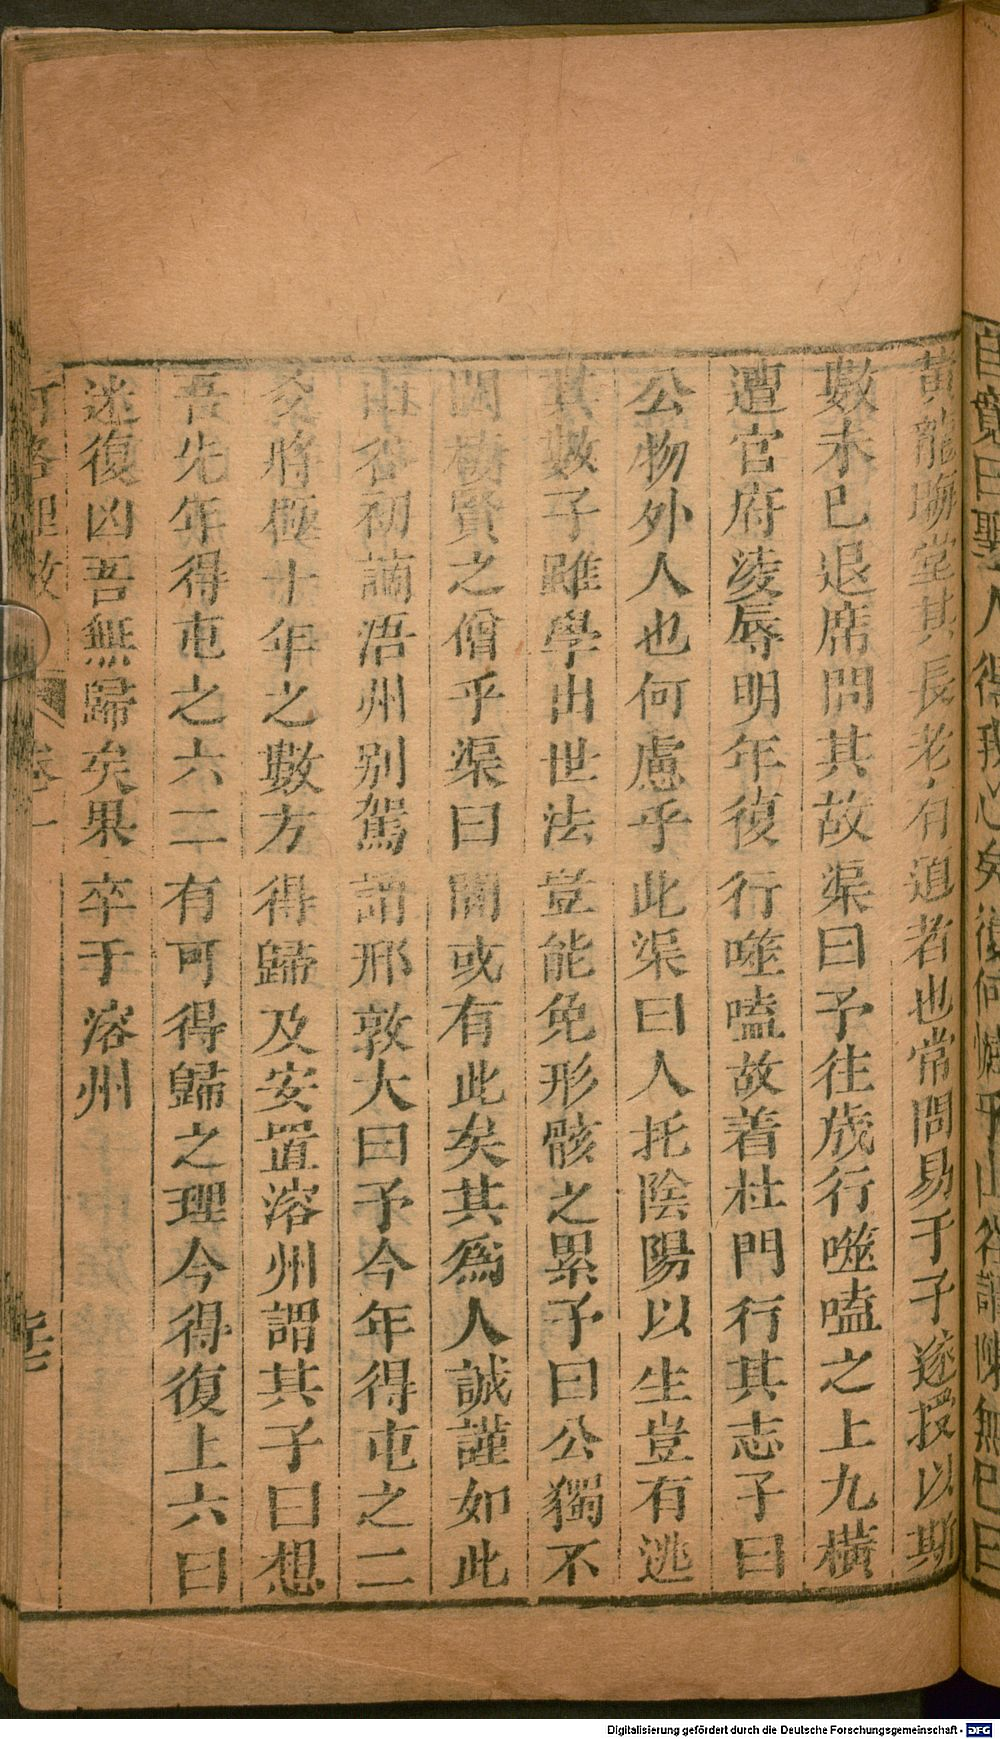 自竟曰聖人得我心矣復何憾乎山谷謂陳無巳曰
黃龍晦堂其長老有道者也常問易于予遂授以斯
數未已退席問其故渠曰予往歲行噬嗑之上九橫
遭官府凌辱明年復行噬嗑故着杜門行其志子曰
公物外人也何慮乎此渠曰人托陰陽以生豈有逃
其數子雖學出世法豈能免形骸之累予曰公獨不
聞棲賢之僧乎渠曰聞或有此矣其為人誠謹如此
山谷初謫涪州別駕謂邢敦夫曰予今年得屯之二
爻將極十年之數方得歸及安置溶州謂其子曰想
吾先年得屯之六二有可得歸之理今得復上六曰
迷復凶吾無歸矣果卒于溶州
河洛理數
卷一
Digitalisierung gefördert durch die Deutsche Forschungsgemeinschaft - DFG